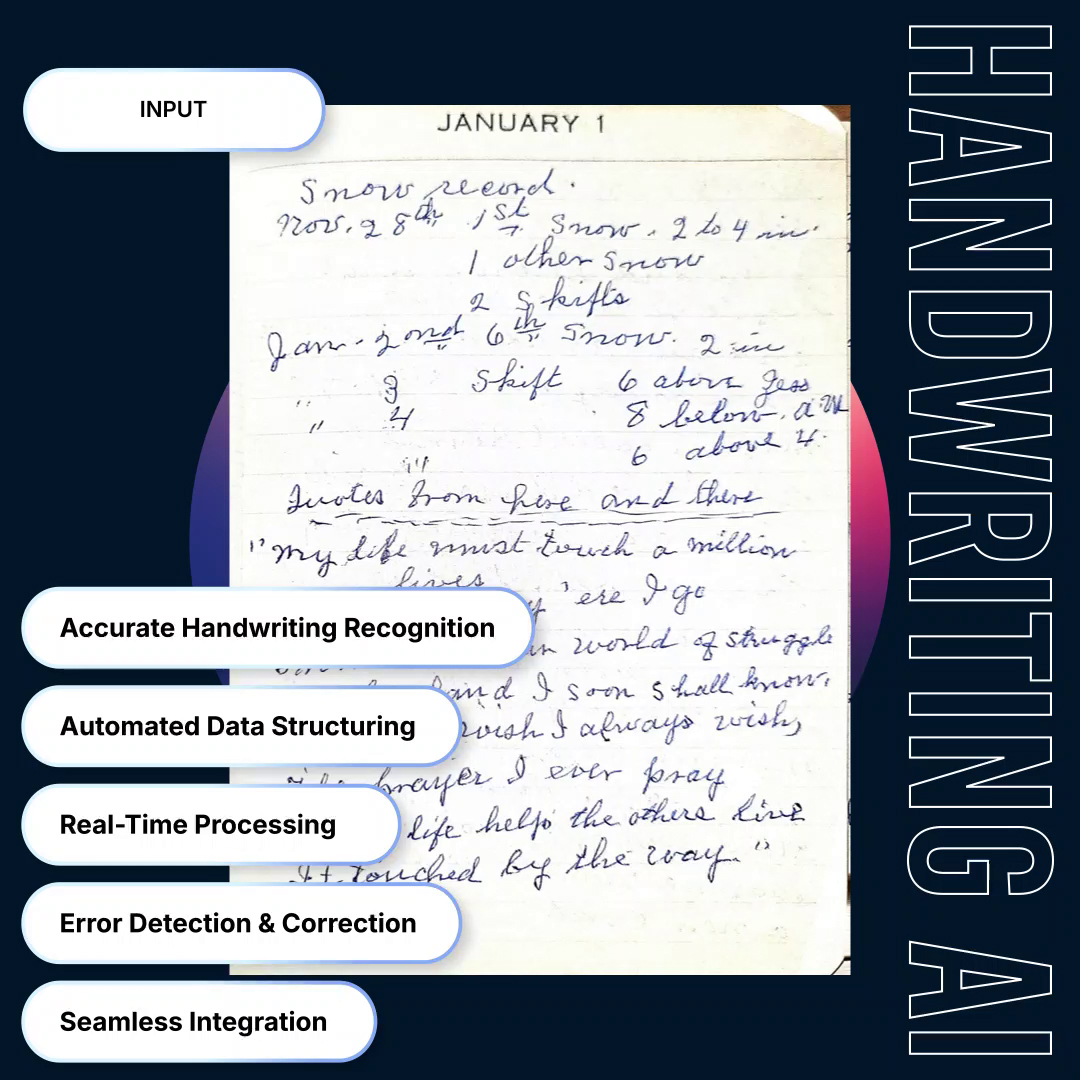 INPUT
JANUARY 1
Snow record.
Nov. 28th 1st Snow. 2 to 4 in.
1 other snow
2 Skifts
Jan. 2nd 6th Snow. 2 in
" 3 Skift 6 above
" 4 8 below.
6 above 4.
Quotes from here and there
"My life must touch a million
lives
'ere I go
world of struggle
and I soon shall know,
wish I always wish,
prayer I ever pray
life helps the others live
It touched by the way."
Accurate Handwriting Recognition
Automated Data Structuring
Real-Time Processing
Error Detection & Correction
Seamless Integration
HANDWRITING AI